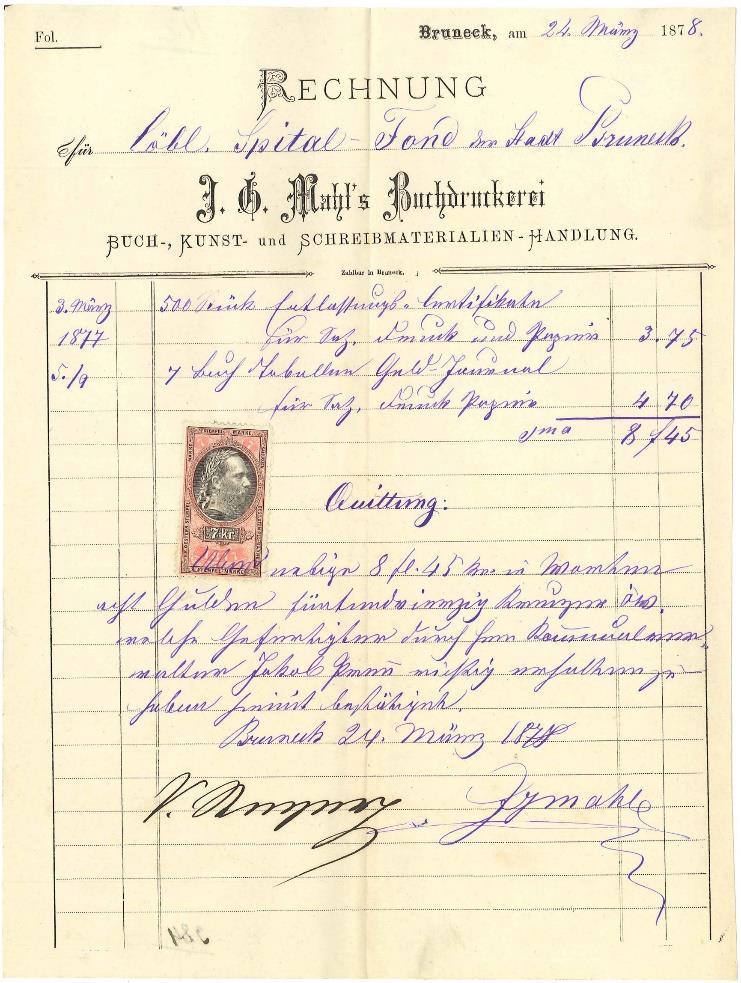 Fol.
Bruneck, am 24. März 1878.
RECHNUNG
für Löbl. Spital-Fond der Stadt Bruneck.
J. G. Mahl's Buchdruckerei
BUCH-, KUNST- und SCHREIBMATERIALIEN-HANDLUNG.
Zahlbar in Bruneck.
3. März 500 Stück Entlassungs-Certifikate
1877 für Satz, Druck und Papier 3.75
5./9 7 Buch Tabellen Geld-Journal
für Satz, Druck Papier 4 70
Sma 8 f 45
STEMPEL MARKE
7 kr
Quittung:
obige 8 fl. 45 kr. in Worten
acht Gulden fünfundvierzig Kreuzer öw.
welche Gefertigter durch Herr Kommunalver-
walter Jakob richtig erhalten zu
haben hiemit bestätiget.
Bruneck 24. März 1878
JGMahl
384